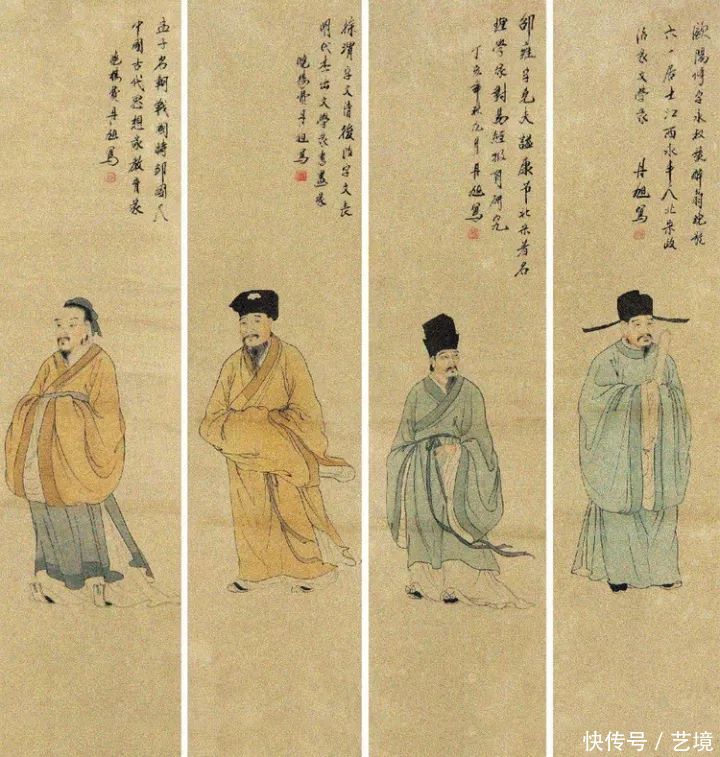 歐陽修字永叔號醉翁晚號
六一居士江西永丰人北宋政
治家文學家 丹旭寫
邵雍字堯夫諡康節北宋著名
理學家對易經很有研究
丁亥年秋八月丹旭寫
徐渭字文清後改字文長
明代杰出文學家書畫家
曉樓費丹旭寫
孟子名軻戰國時鄒國人
中國古代思想家教育家
曉樓費丹旭寫
快传号/艺境